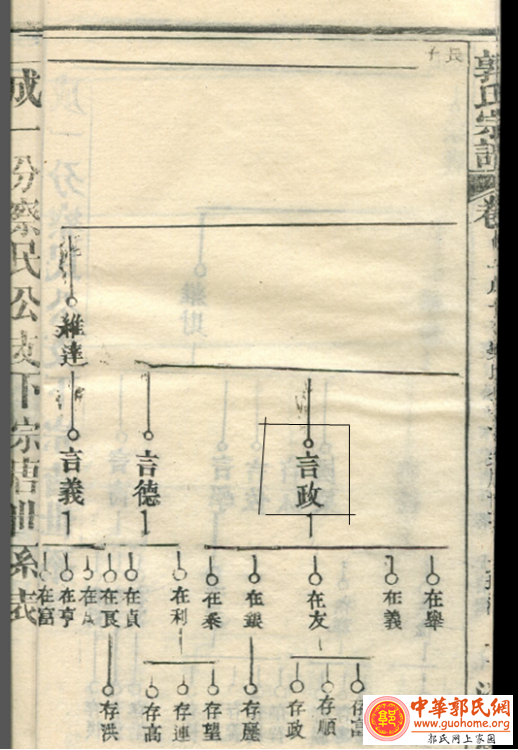 郭氏宗譜 卷
言政
在舉 在義 在友 在銀 在泰
存富 存順 存政 存慶 存望
言德
在利 在貞 在良
存連 存高 存洪
維達
言義
在亨 在富
成一分察民公支下宗信
孫表
中華郭氏網
www.guohome.org
郭氏网上家園